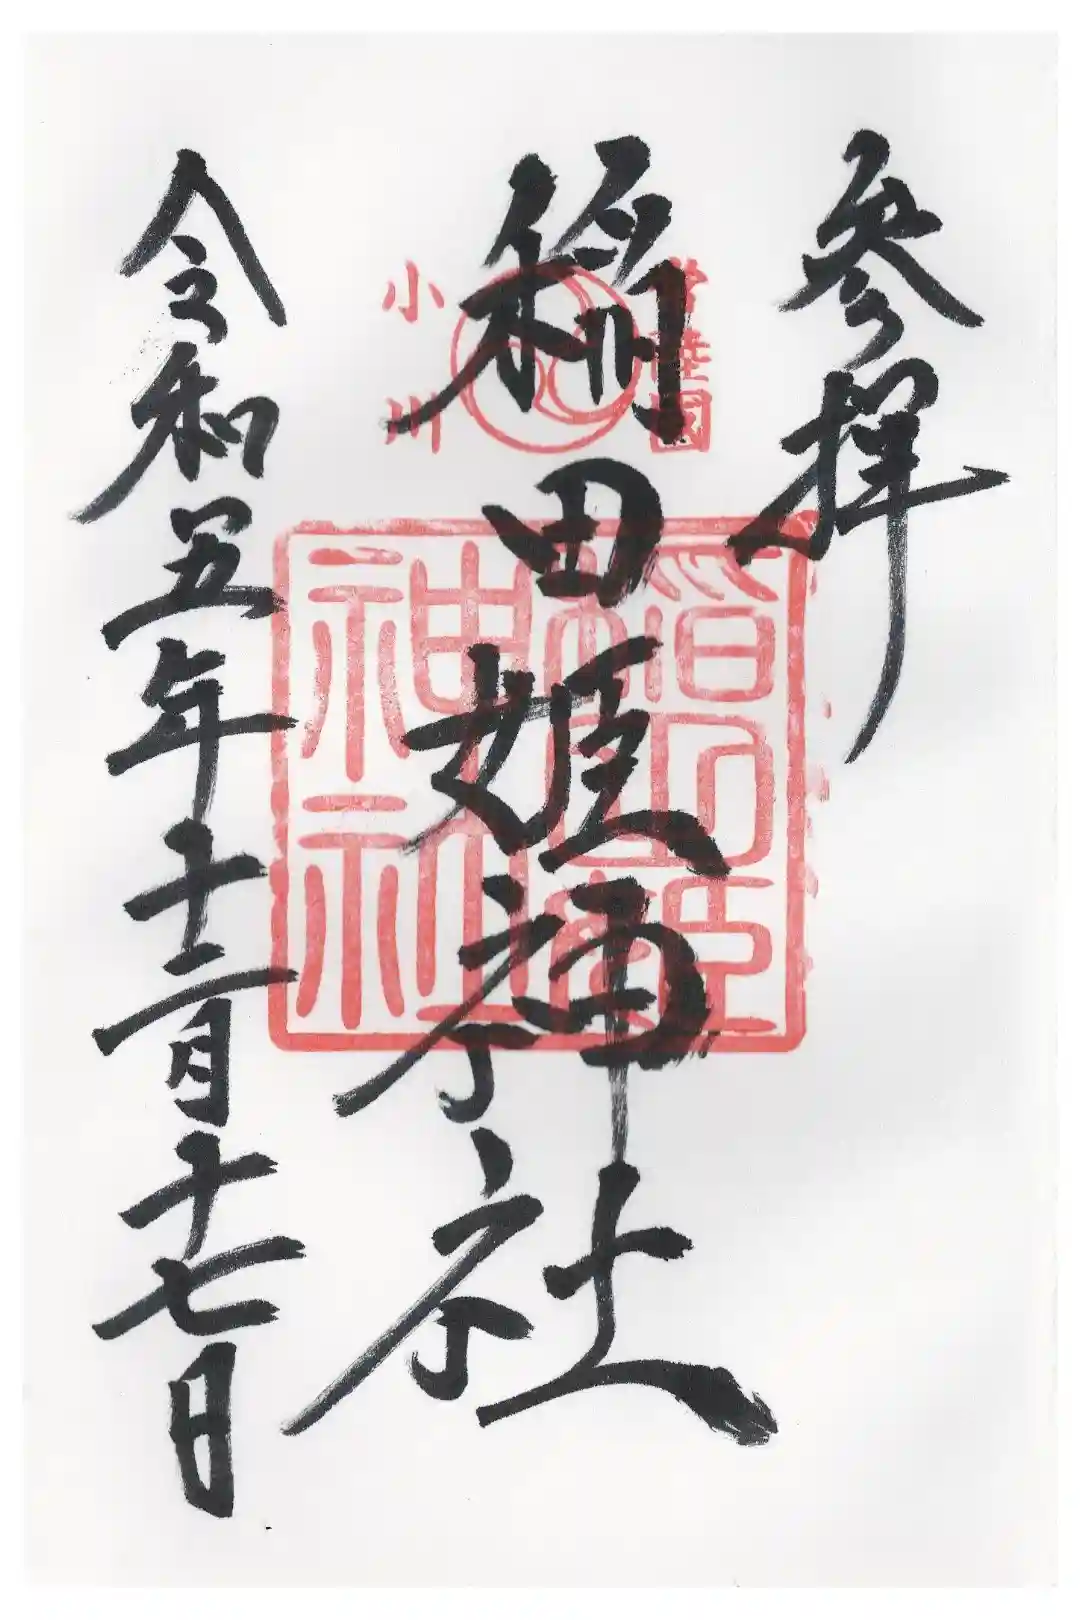 参拝
常陸國
稲田姫神社
小川
令和五年十二月十七日
神社